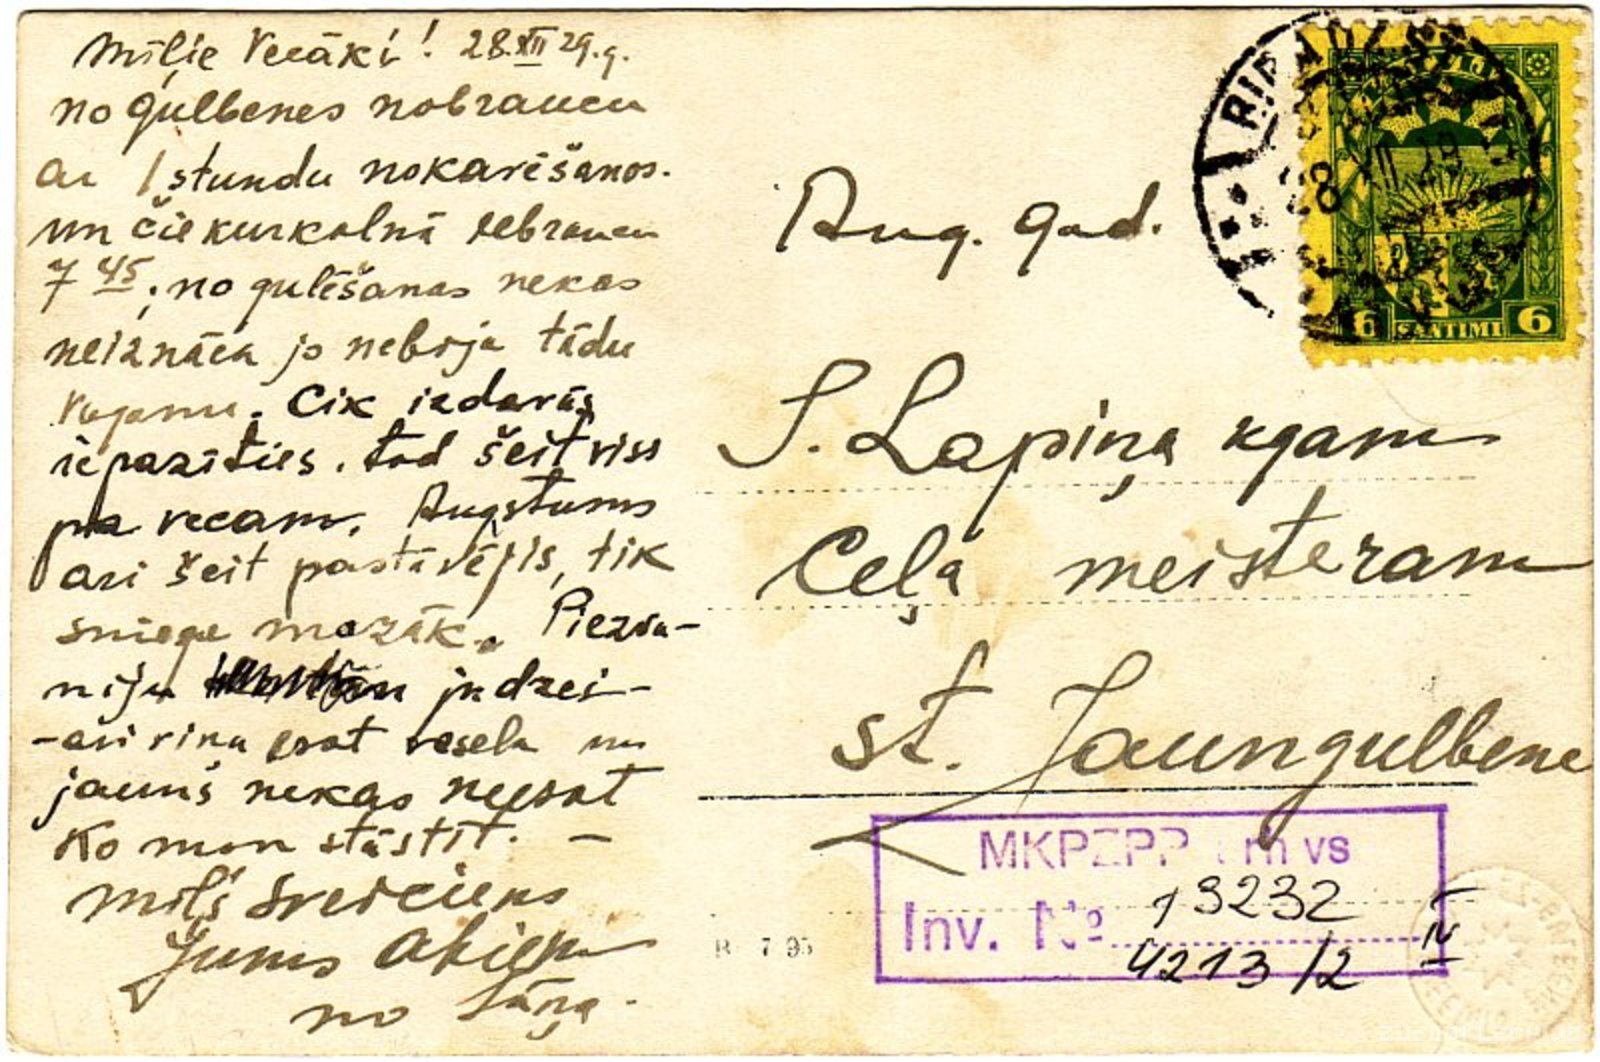 Mīļie Vecāki! 28.XII 29.g.
no Gulbenes nobraucu
ar 1 stundu nokavēšanos.
un Čiekurkalnā iebraucu
7 45; no gulēšanas nekas
neiznāca jo nebija tādu
vagonu. Cik izdarās
iepazīties, tad šeit viss
pa vecam. Augstums
arī šeit pastāvējis, tik
sniega mazāk. Piezva-
niju
-arī viņa esot vesela un
jauns nekas neesot
Ko man stāstīt. —
Mīļš sveiciens
Jums abiem
no Jāņa.
Aug. God.
J. Lapiņa kgam
Ceļa meisteram
st. Jaungulbene
28 XII 29
6 SANTIMI 6
MKPZPP
Inv. No 13232
4213/2 IV